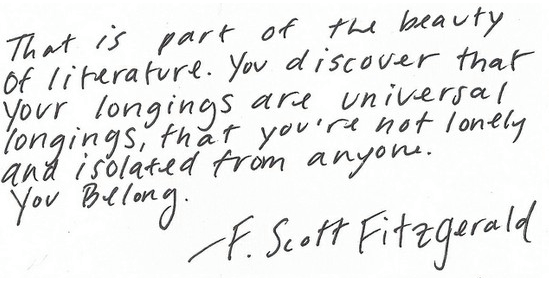 That is part of the beauty
of literature. You discover that
your longings are universal
longings, that you're not lonely
and isolated from anyone.
You Belong.
—F. Scott Fitzgerald